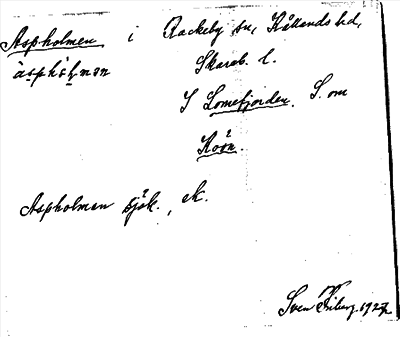 Aspholmen i Rackeby sn, Kållands hd,
àsphòlmən Skarab. l.
I Lomefjorden. S. om
Koön.
Aspholmen sjök., ek.
Sven Friberg 1927